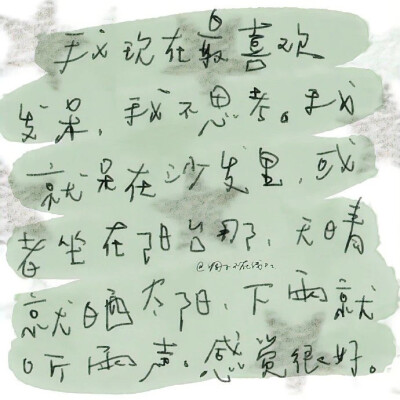 我现在最喜欢
发呆，我不思考。我
就呆在沙发里，或
者坐在阳台那，天晴
就晒太阳，下雨就
听雨声。感觉很好。